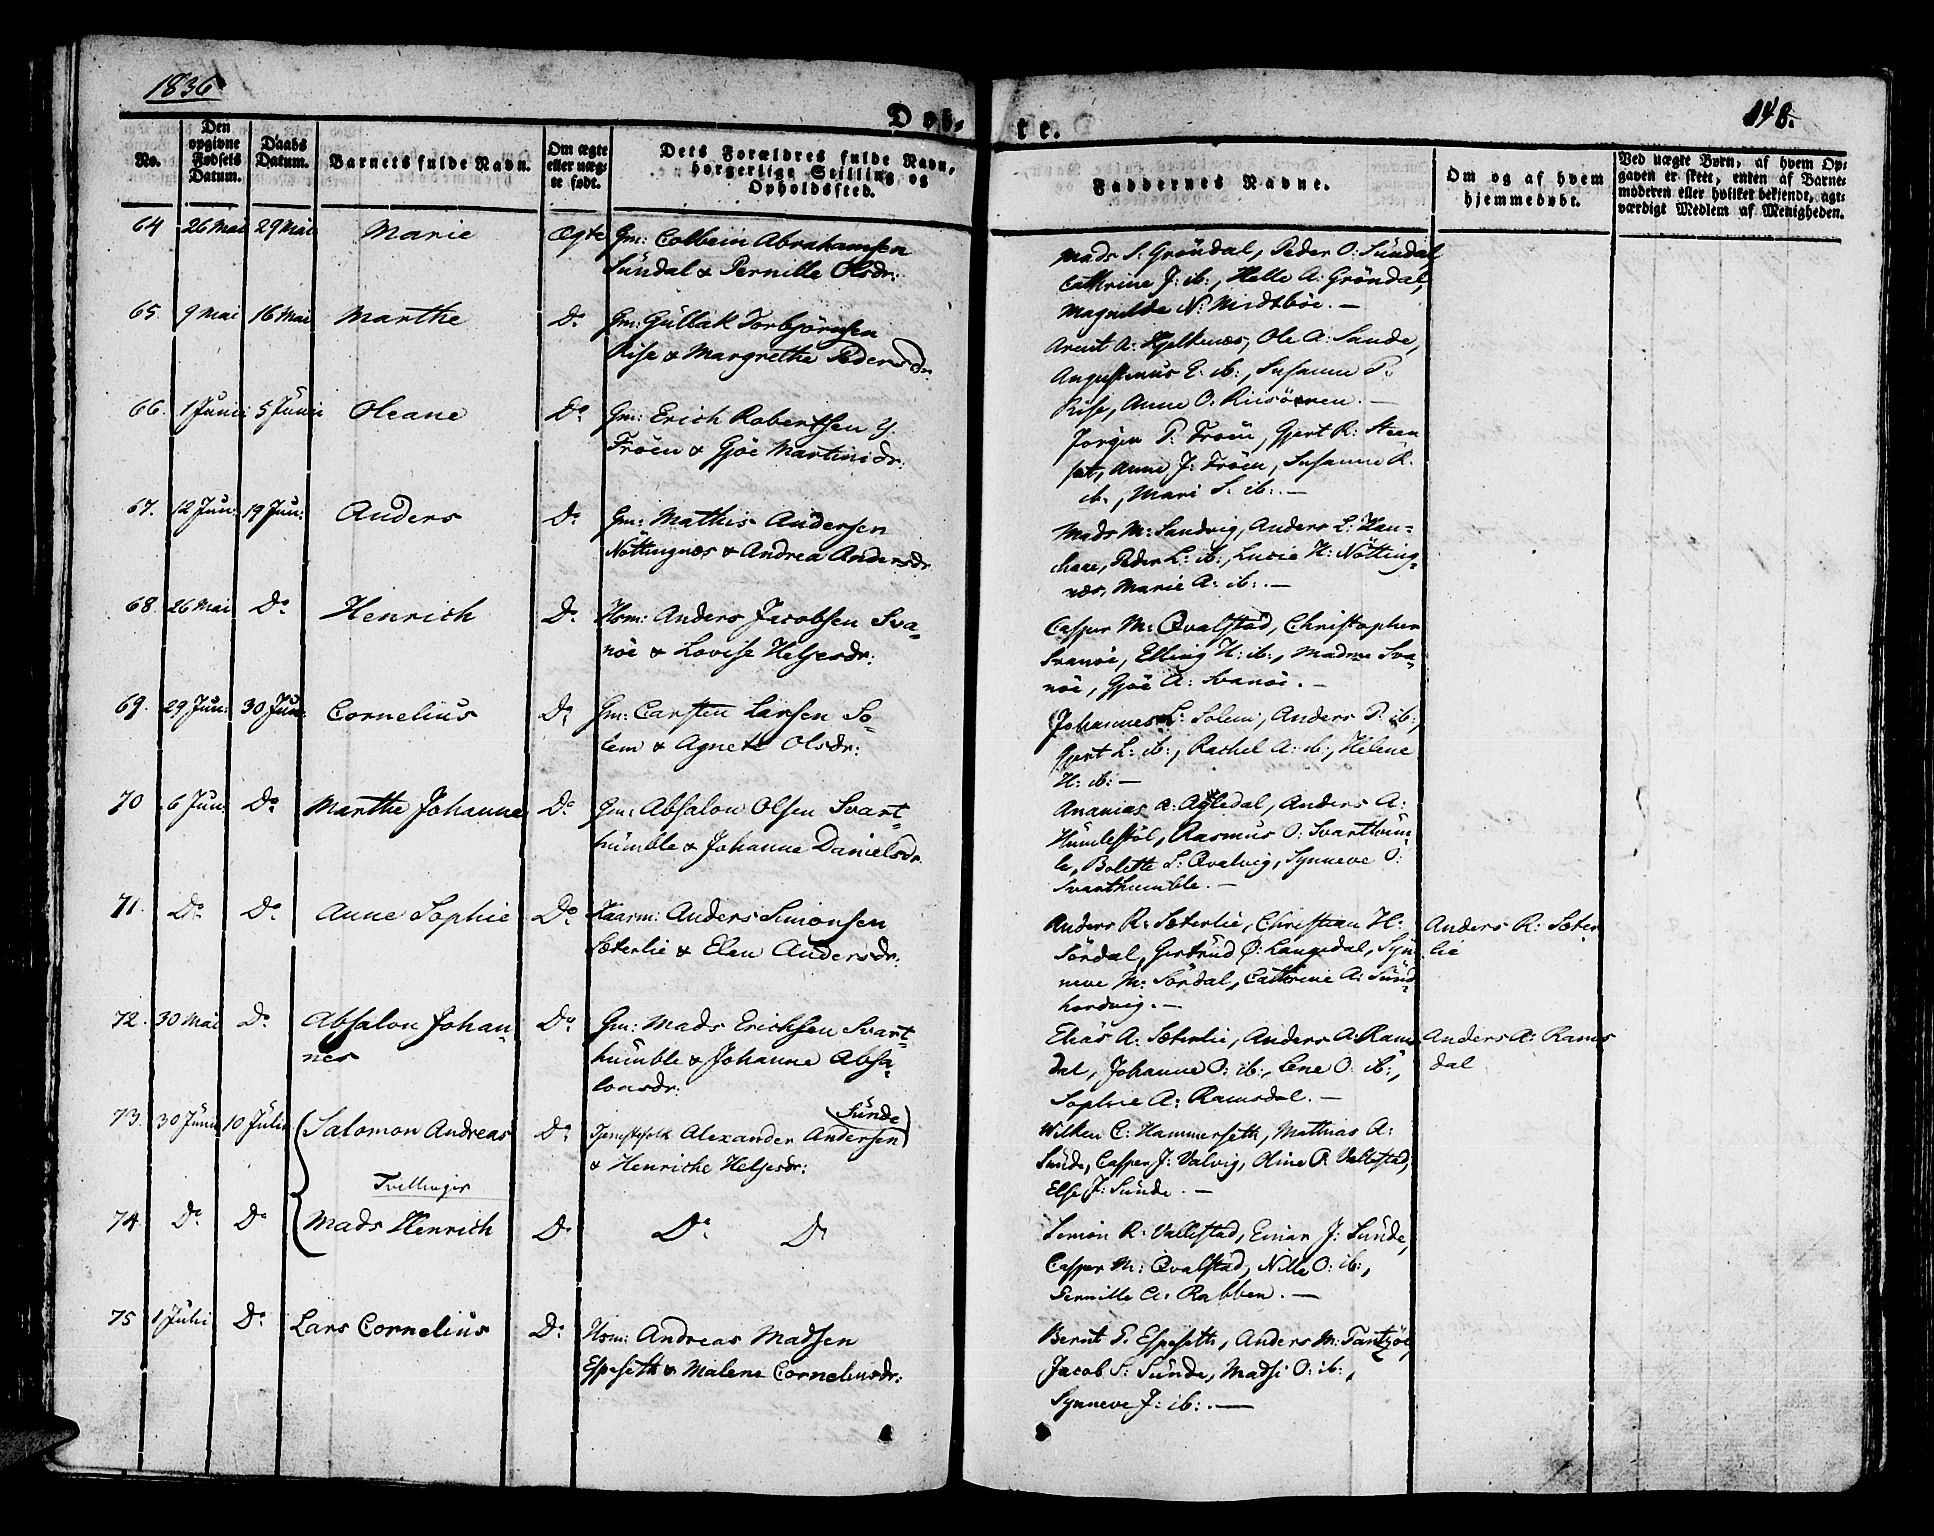 1836
148.
Døb-
te.
No.
Den opgivne Fødsels Datum.
Daabs Datum.
Barnets fulde Navn.
Om ægte eller uægte født.
Dets Forældres fulde Navn, borgerlige Stilling og Opholdssted.
Faddernes Navne.
Om og af hvem hjemmedøbt.
Ved uægte Børn, af hvem Opgaven er skeet, enten af Barnemoderen eller hvilket bekjendt, agtværdigt Medlem af Menigheden.
64 26 Mai 29 Mai Marie Ægte Gm: Colbein Abrahamsen
Sündal & Pernille Olsdr:
Mads S: Gröndal, Peder O: Sündal,
Cathrine J: ib:, Helle A: Gröndal,
Magnilda N: Midtböe. —
65. 9 Mai 16 Mai Marthe Do Gm: Güllak Torbjörnsen
Rise & Margrethe Pedersdr:
Arent A: Hjelkenæs, Ole A: Sande,
Augustinus E: ib:, Susanne P:
Rise, Anne O: —
66. 1 Junii 5 Junii Oleane Do Gm: Erich Robertsen y.
Fröen & Gjöe Martinidr:
Jörgen P: Fröen, Gjert R: Steen
set, Anne J: Fröen, Susanne R.
ib:, Mari S: ib:. —
67. 12 Jun: 19 Jun: Anders Do Gm: Mathis Andersen
Nöttingnæs & Andrea Andersdr:
Mads M: Sandvig, Anders L: Hau-
hane, Peder L: ib:, Lucie H: Nötting-
næs, Marie A: ib:. —
68. 26 Mai Do Henrich Do Hsm: Anders Jacobsen Sva-
nöe & Lovise Heljesdr:
Casper M: Qvalstad, Christopher
Svanöe, Elling H: ib:, Madme Sva-
nöe, Gjöe A: Svanöe. —
69. 29 Jun: 30 Jun: Cornelius Do Gm: Carsten Larsen So-
lem & Agnete Olsdr:
Johannes L: Solem, Anders P: ib:,
Gjert L: ib:, Rachel A: ib:, Helene
H: ib: —
70 6 Jun: Do Marthe Johanne Do Gm: Absalon Olsen Svart-
humble & Johanne Danielsdr:
Ananias A: Agledal, Anders A:
Humlestöl, Rasmus O: Svarthum-
le, Bolette S: Qvalvig, Synneve O:
Svarthumble. —
71. Do Do Anne Sophie Do Kaarm: Anders Simonsen
Sæterlie & Elen Andersdr:
Anders R: Sæterlie, Christian H:
Sördal, Gertrüd Ø: Langedal, Syn-
neve M: Sördal, Cathrine A: Sünd-
hordvig. —
Anders R: Sæter-
lie
72. 30 Mai Do Absalon Johan-
nes Do Gm: Mads Erichsen Svart-
humble & Johanne Absa-
lonsdr:
Elias A: Sæterlie, Anders A: Rams
dal, Johanne O: ib:, Lene O: ib:,
Sophie A: Ramsdal. —
Anders A: Rams
dal
73. 30 Junii 10 Julii Salomon Andreas Do Tjenestefolk Alexander Andersen (Sünde)
& Henriche Heljesdr:
Wilken C: Hammerseth, Mathias A:
Sünde, Casper J: Valvig, Oline P. Vallestad,
Else J: Sünde. —
Tvillinger
74. Do Do Mads Henrich Do Do Do
Simon R: Vallestad, Einar J: Sünde,
Casper M: Qvalstad, Nille O: ib:,
Pernille A: Rabben. —
75 1 Julii Do Lars Cornelius Do Hsm: Andreas Madsen
Espeseth & Malene Corneliusdr:
Bernt T: Espeseth, Anders M:
Jacob S: Sünde, Madsi O: ib:,
Synneve J: ib:. —